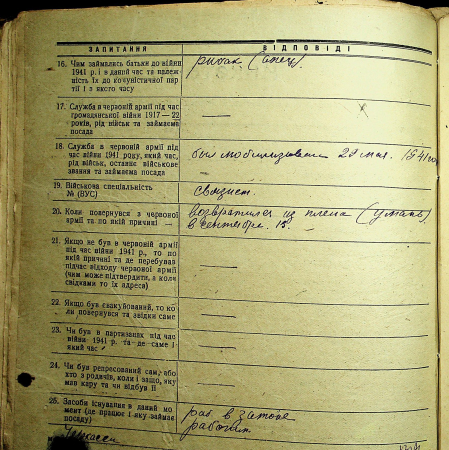 ЗАПИТАННЯ
ВІДПОВІДІ
16. Чим займались батьки до війни
1941 р. і в даний час та належ-
ність їх до комуністичної пар-
тії і з якого часу
рыбак (отец).
17. Служба в червоній армії під час
громадянської війни 1917—22
років, рід військ та займаєма
посада
—
18. Служба в червоній армії під
час війни 1941 року, який час,
рід військ, останнє військове
звання та займаєма посада
был мобилизован 29 1941
—
19. Військова спеціальність
№ (ВУС)
связист.
20. Коли повернувся з червоної
армії та по якій причині —
возвратился из плена (Умань)
в сентябре
21. Якщо не був в червоній армії
під час війни 1941 р., то по
якій причині та де перебував
підчас відходу червоної армії
(чим може підтвердити, а коли
свідками то їх адреса)
—
22. Якщо був евакуйований, то ко-
ли повернувся та звідки саме
—
23. Чи був в партизанах під час
війни 1941 р. та де саме і
який час
—
24. Чи був репресований сам, або
хто з родичів, коли і защо, яку
мав кару та чи відбув її
—
25. Засоби існування в даний мо-
мент (де працює і яку займає
посаду)
раб. в затоне
рабочим
Черкассы